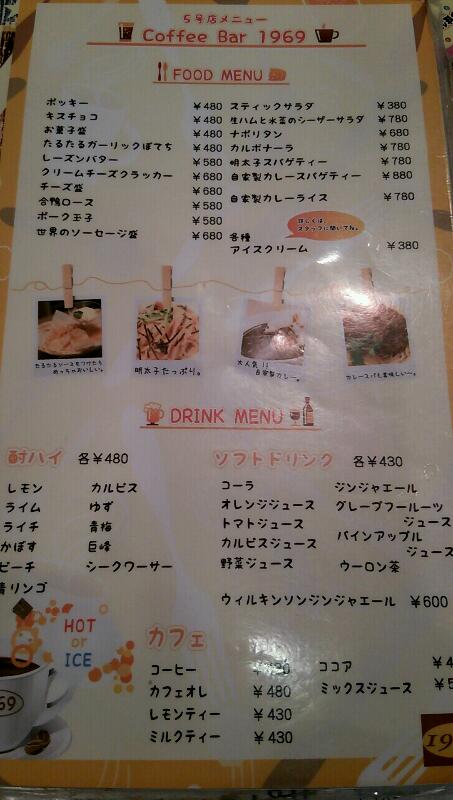 5号店メニュー
Coffee Bar 1969
FOOD MENU
ポッキー ¥480
キスチョコ ¥480
お菓子盛 ¥480
たるたるガーリックぽてち ¥480
レーズンバター ¥580
クリームチーズクラッカー ¥680
チーズ盛 ¥680
合鴨ロース ¥580
ポーク玉子 ¥580
世界のソーセージ盛 ¥680
スティックサラダ ¥380
生ハムと水菜のシーザーサラダ ¥780
ナポリタン ¥680
カルボナーラ ¥780
明太子スパゲティー ¥780
自家製カレースパゲティー ¥880
自家製カレーライス ¥780
詳しくは、
スタッフに聞いてね。
各種
アイスクリーム ¥380
たるたるソースをつけたら
めっちゃおいしい。
明太子たっぷり。
大人気!!
自家製カレー。
カレースパも美味しい〜。
DRINK MENU
酎ハイ 各¥480
レモン
ライム
ライチ
かぼす
ピーチ
青リンゴ
カルピス
ゆず
青梅
巨峰
シークワーサー
ソフトドリンク 各¥430
コーラ
オレンジジュース
トマトジュース
カルピスジュース
野菜ジュース
ジンジャエール
グレープフルーツ
ジュース
パインアップル
ジュース
ウーロン茶
ウィルキンソンジンジャエール ¥600
HOT
or
ICE
カフェ
コーヒー
カフェオレ ¥480
レモンティー ¥430
ミルクティー ¥430
ココア ¥4
ミックスジュース
69
19